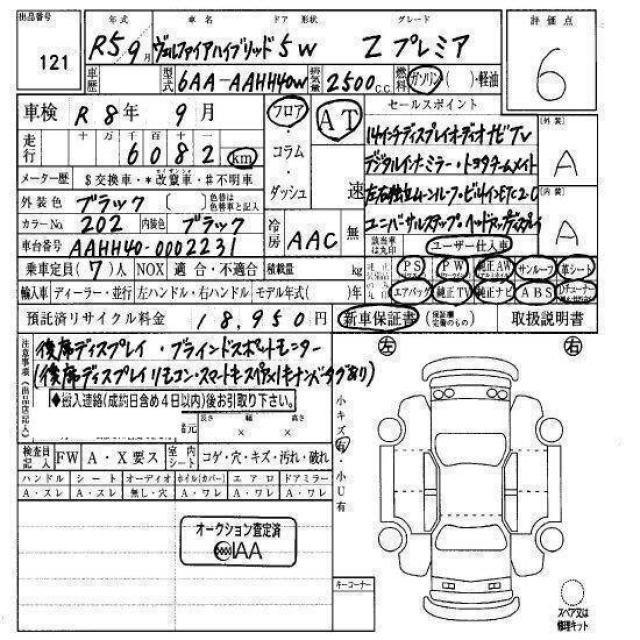 出品番号 年式 車名 ドア 形状 グレード 評価点
121 R5.9月 ヴェルファイアハイブリッド 5W Z プレミア 6
車歴 型式 6AA-AAHH40W 排気量 2500 C.C. 燃料 ガソリン ( )・軽油
車検 R 8年 9月 フロア AT セールスポイント
走行 十 万 千 百 十 一
6082 km
・コラム・ダッシュ
14インチディスプレイオーディオナビTV 外装 A
デジタルインナーミラー・トヨタチームメイト
メーター歴 $交換車・*改竄車・#不明車
外装色 ブラック 〔 〕 色替は色替車と記入 速
左右独立ムーンルーフ・ビルトインETC2.0 内装 A
カラーNo. 202 内装色 ブラック 冷房 AAC 無
ユニバーサルステップ・ヘッドアップディスプレイ
車台番号 AAHH40-0002231 該当車は丸印 ユーザー仕入車
乗車定員(7)人 NOX 適合・不適合 積載量 kg
PS PW 純正AW サンルーフ 革シート
輸入車 ディーラー・並行 左ハンドル・右ハンドル モデル年式( )年
エアバッグ 純正TV 純正ナビ ABS Dチューナー
預託済リサイクル料金 18,950円 新車保証書 (保証欄完備のもの) 取扱説明書
注意事項(出品店記入)
後席ディスプレイ・ブラインドスポットモニター
(後席ディスプレイリモコン・スマートキースペア1キーナンバータグあり)
◆搬入連絡(成約日含め4日以内)後お引取り下さい。
長さ 幅 高さ
× ×
左 右
小キズ有・小U有
検査員記入 FW A・X要ス 室内シート コゲ・穴・キズ・汚れ・破れ
ハンドル シート オーディオ ホイル(カバー) エアロ ドアミラー
A・スレ A・スレ 無し・穴 A・ワレ A・ワレ A・ワレ
オークション査定済
IAA
キーコーナー
スペア又は修理キット